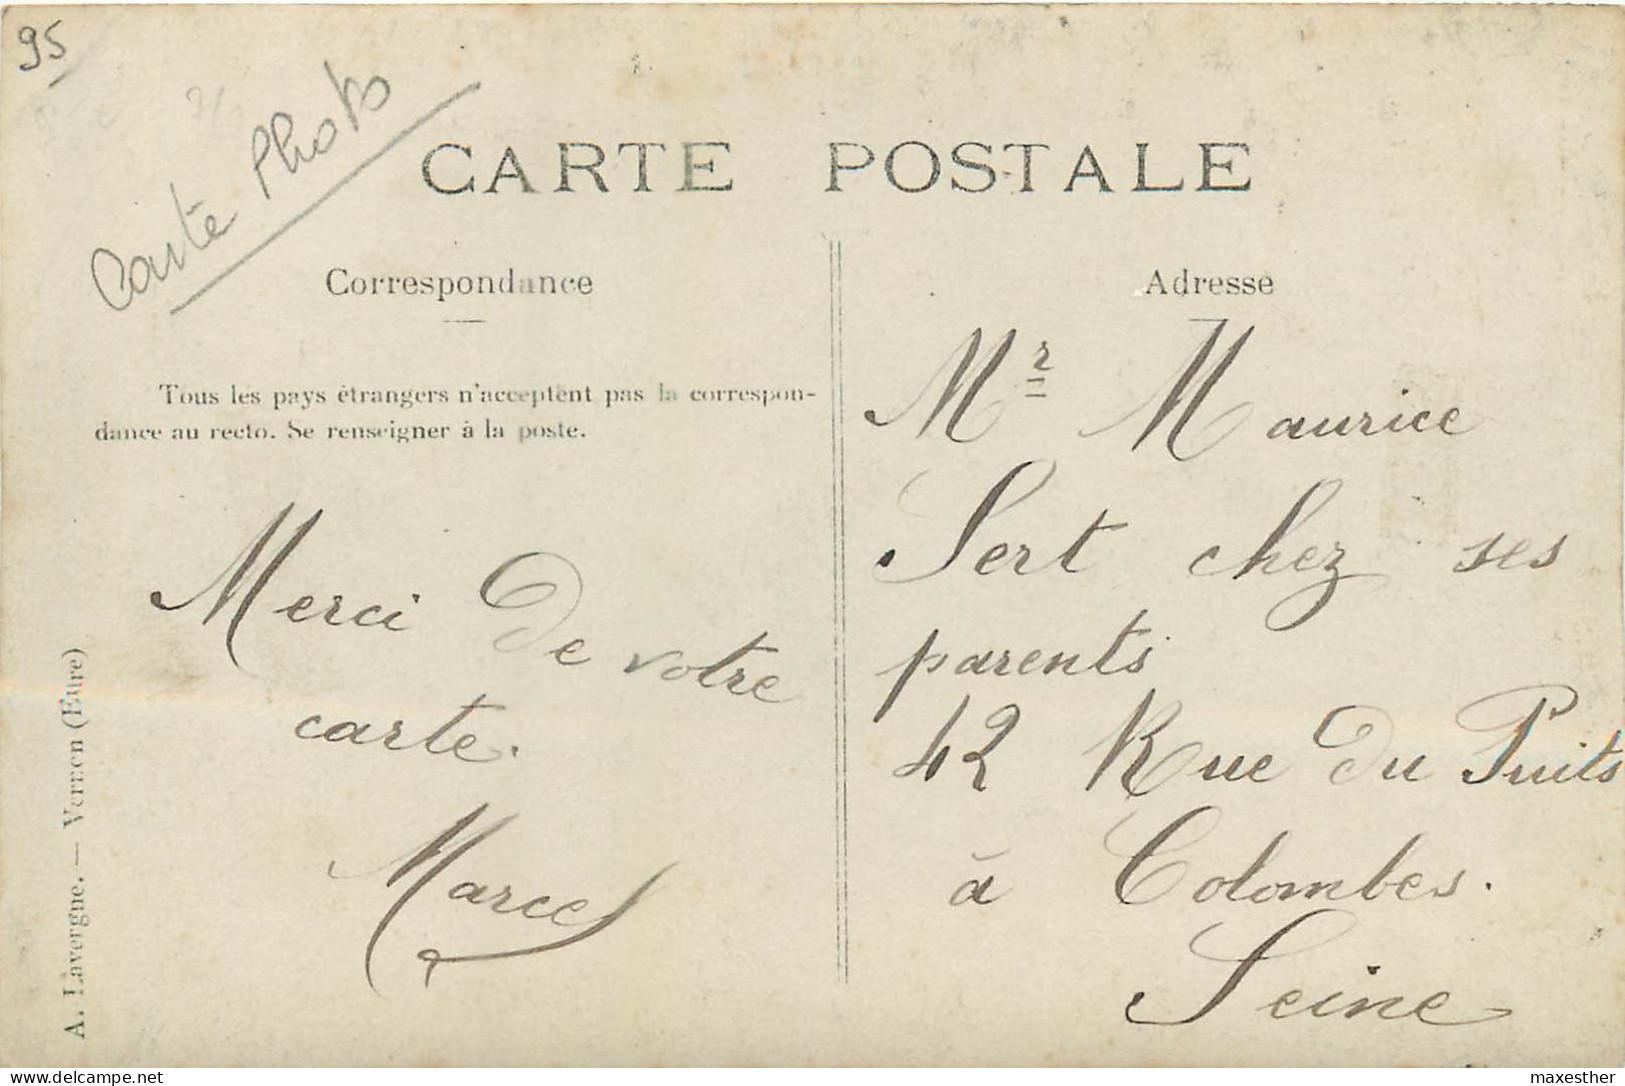 95
Carte Photo
CARTE POSTALE
Correspondance
Tous les pays étrangers n'acceptent pas la correspon-
dance au recto. Se renseigner à la poste.
Merci de votre
carte.
Marcel
A. Lavergne. — Vernon (Eure)
Adresse
Mr Maurice
Sert chez ses
parents
42 Rue du Puits
à Colombes.
Seine
delcampe.net
maxesther